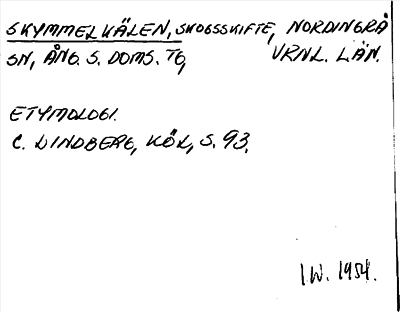 SKYMMELKÄLEN, SKOGSSKIFTE, NORDINGRÅ
SN, ÅNG. S. DOMS. TG, VRNL. LÄN.
ETYMOLOGI.
C. LINDBERG, KÖL, S. 93.
IW. 1954.